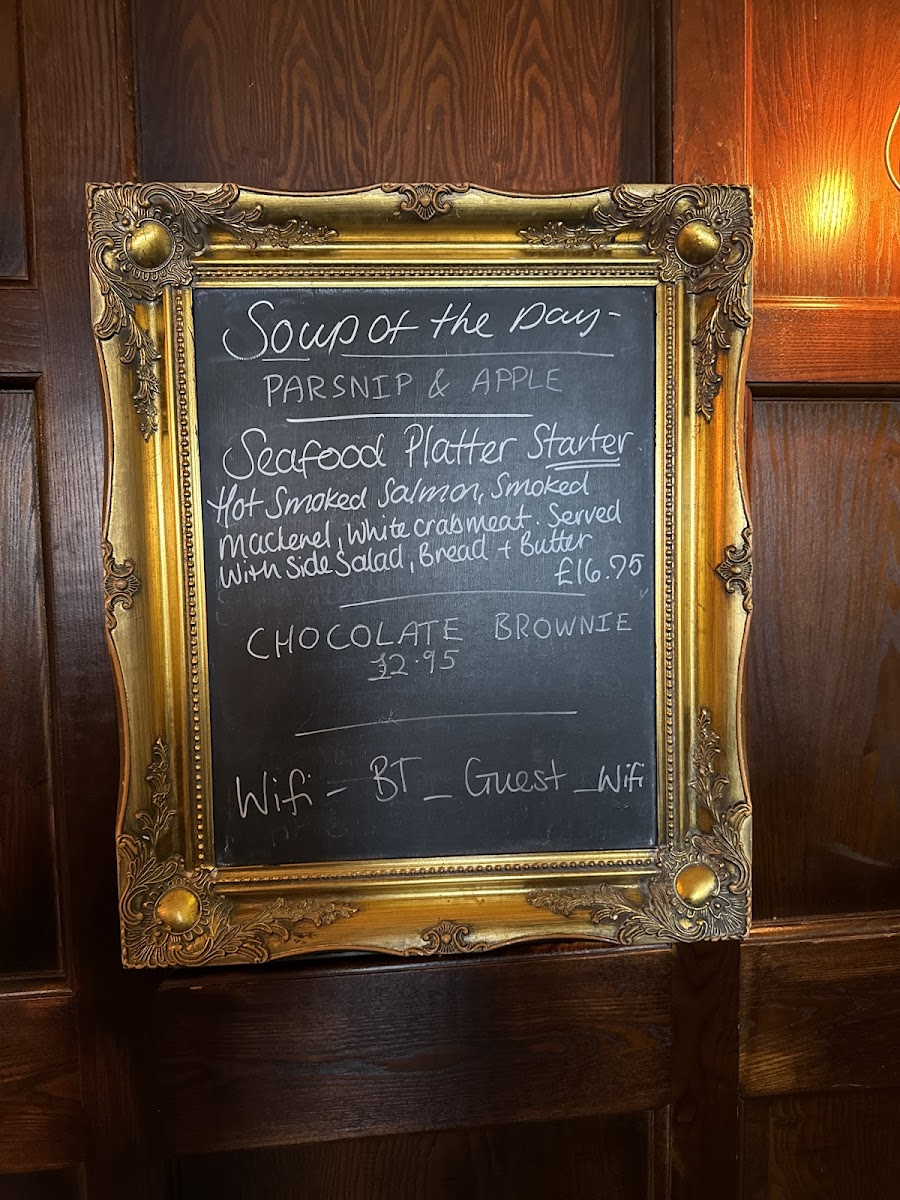 Soup of the Day -
PARSNIP & APPLE
Seafood Platter Starter
Hot Smoked Salmon, Smoked
Mackerel, White crabmeat. Served
With Side Salad, Bread + Butter
£16.95
CHOCOLATE BROWNIE
£2.95
Wifi - BT_Guest_Wifi